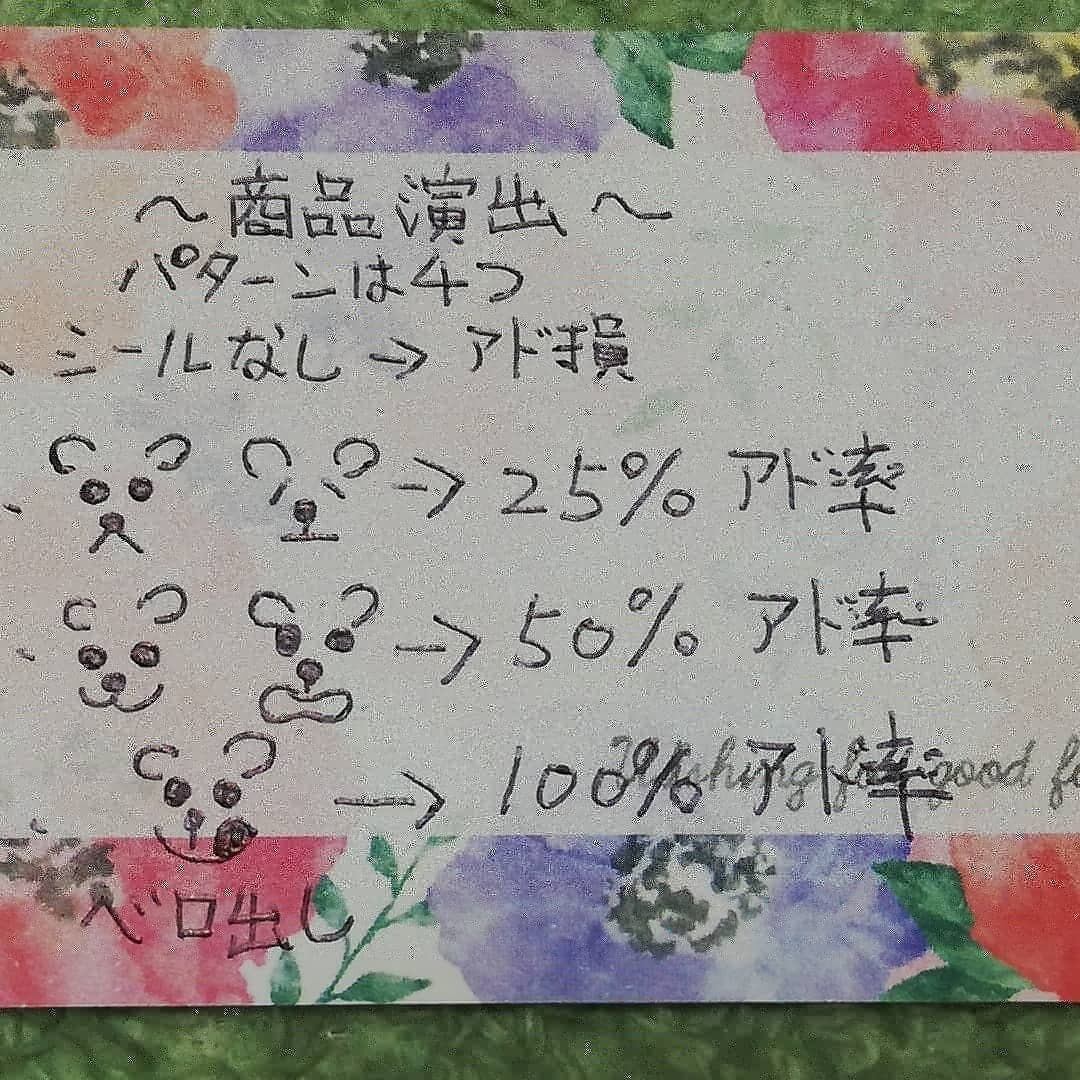 ～商品演出～
パターンは4つ
、シールなし→アド損
、→25% アド率
、→50% アド率
→100% アド率
for good
ベロ出し